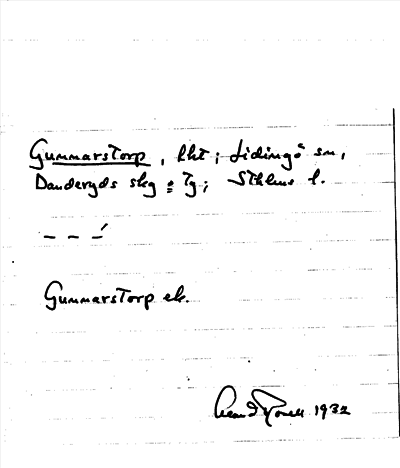 Gummarstorp, lht; Lidingö sn,
Danderyds skg o Tg; Sthlms l.
– – –
Gummarstorp ek.
1932